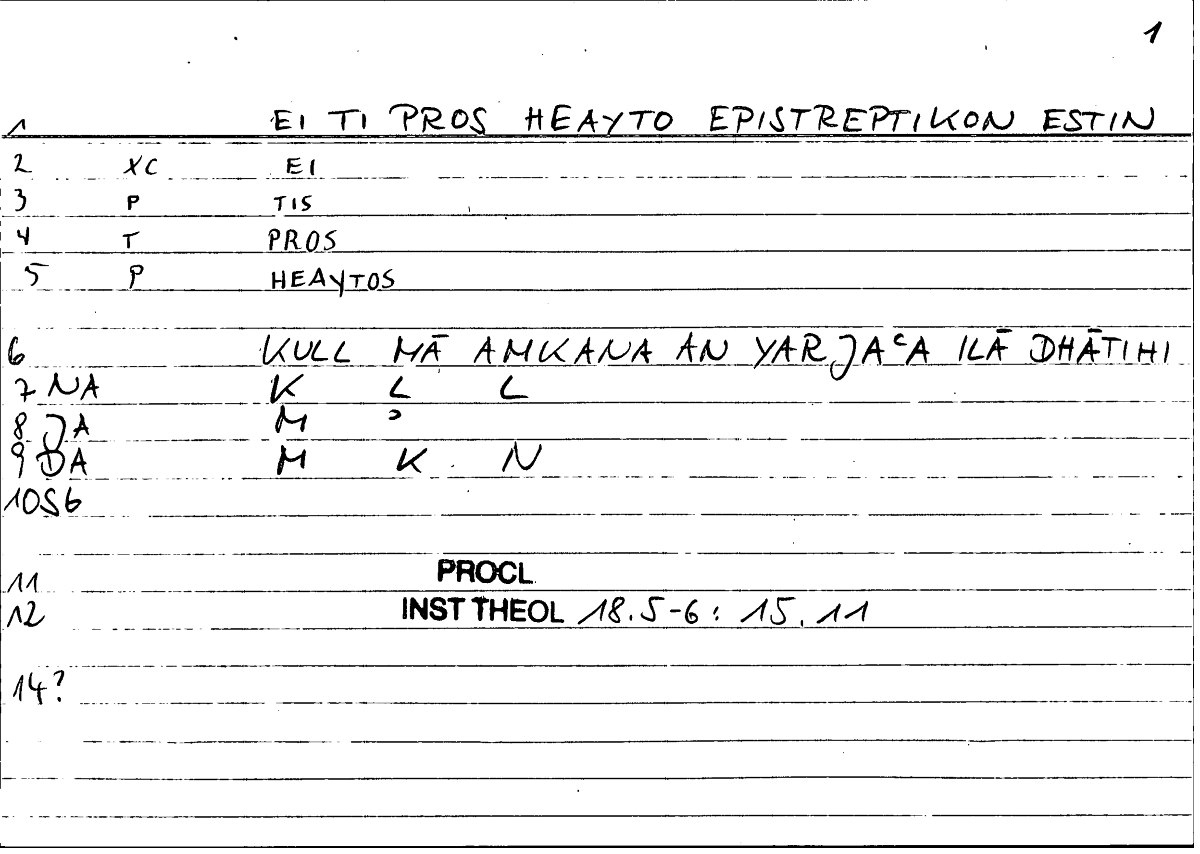 1
1 EI TI PROS HEAYTO EPISTREPTIKON ESTIN
2 XC EI
3 P TIS
4 T PROS
5 P HEAYTOS
6 KULL MĀ AMKANA AN YARJAᶜA ILĀ DHĀTIHI
7 NA K L L
8 JA M ᵓ
9 DA M K N
10 S6
11 PROCL
12 INST THEOL 18.5-6: 15.11
14?